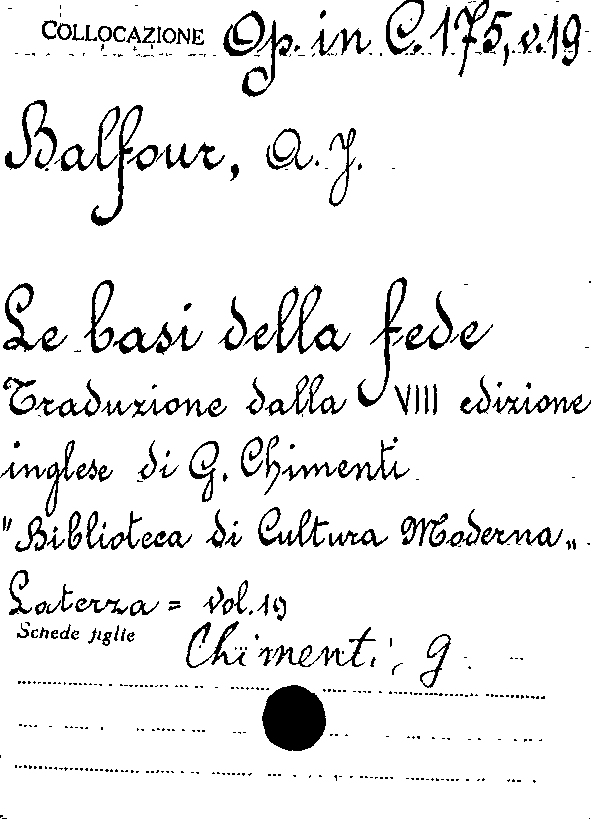 COLLOCAZIONE Op. in C. 175, v. 19
Balfour, A. J.
Le basi della fede
Traduzione dalla VIII edizione
inglese di G. Chimenti
"Biblioteca di Cultura Moderna„
Laterza = vol. 19
Schede figlie Chimenti, G.